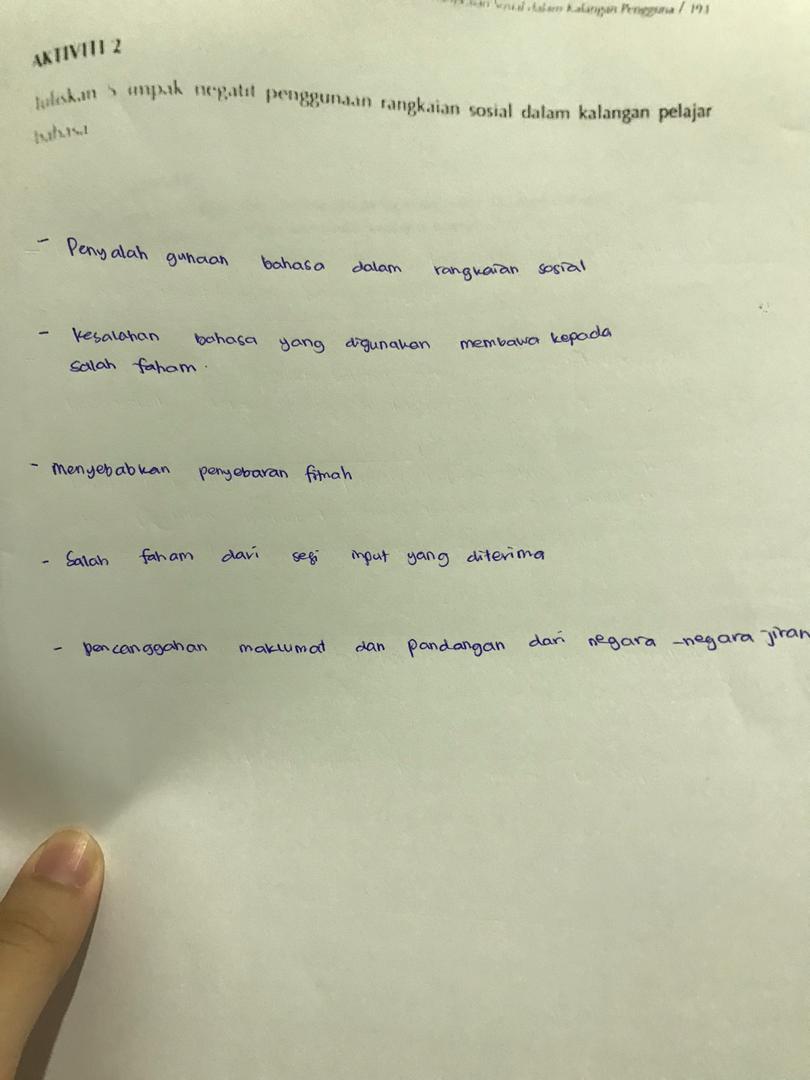 Sosial dalam Kalangan Pengguna / 193
AKTIVITI 2
Tuliskan 5 impak negatif penggunaan rangkaian sosial dalam kalangan pelajar
bahasa
- Penyalah gunaan bahasa dalam rangkaian sosial
- Kesalahan bahasa yang digunakan membawa kepada
salah faham.
- Menyebabkan penyebaran fitnah
- Salah faham dari segi input yang diterima
- pencanggahan maklumat dan pandangan dari negara-negara jiran